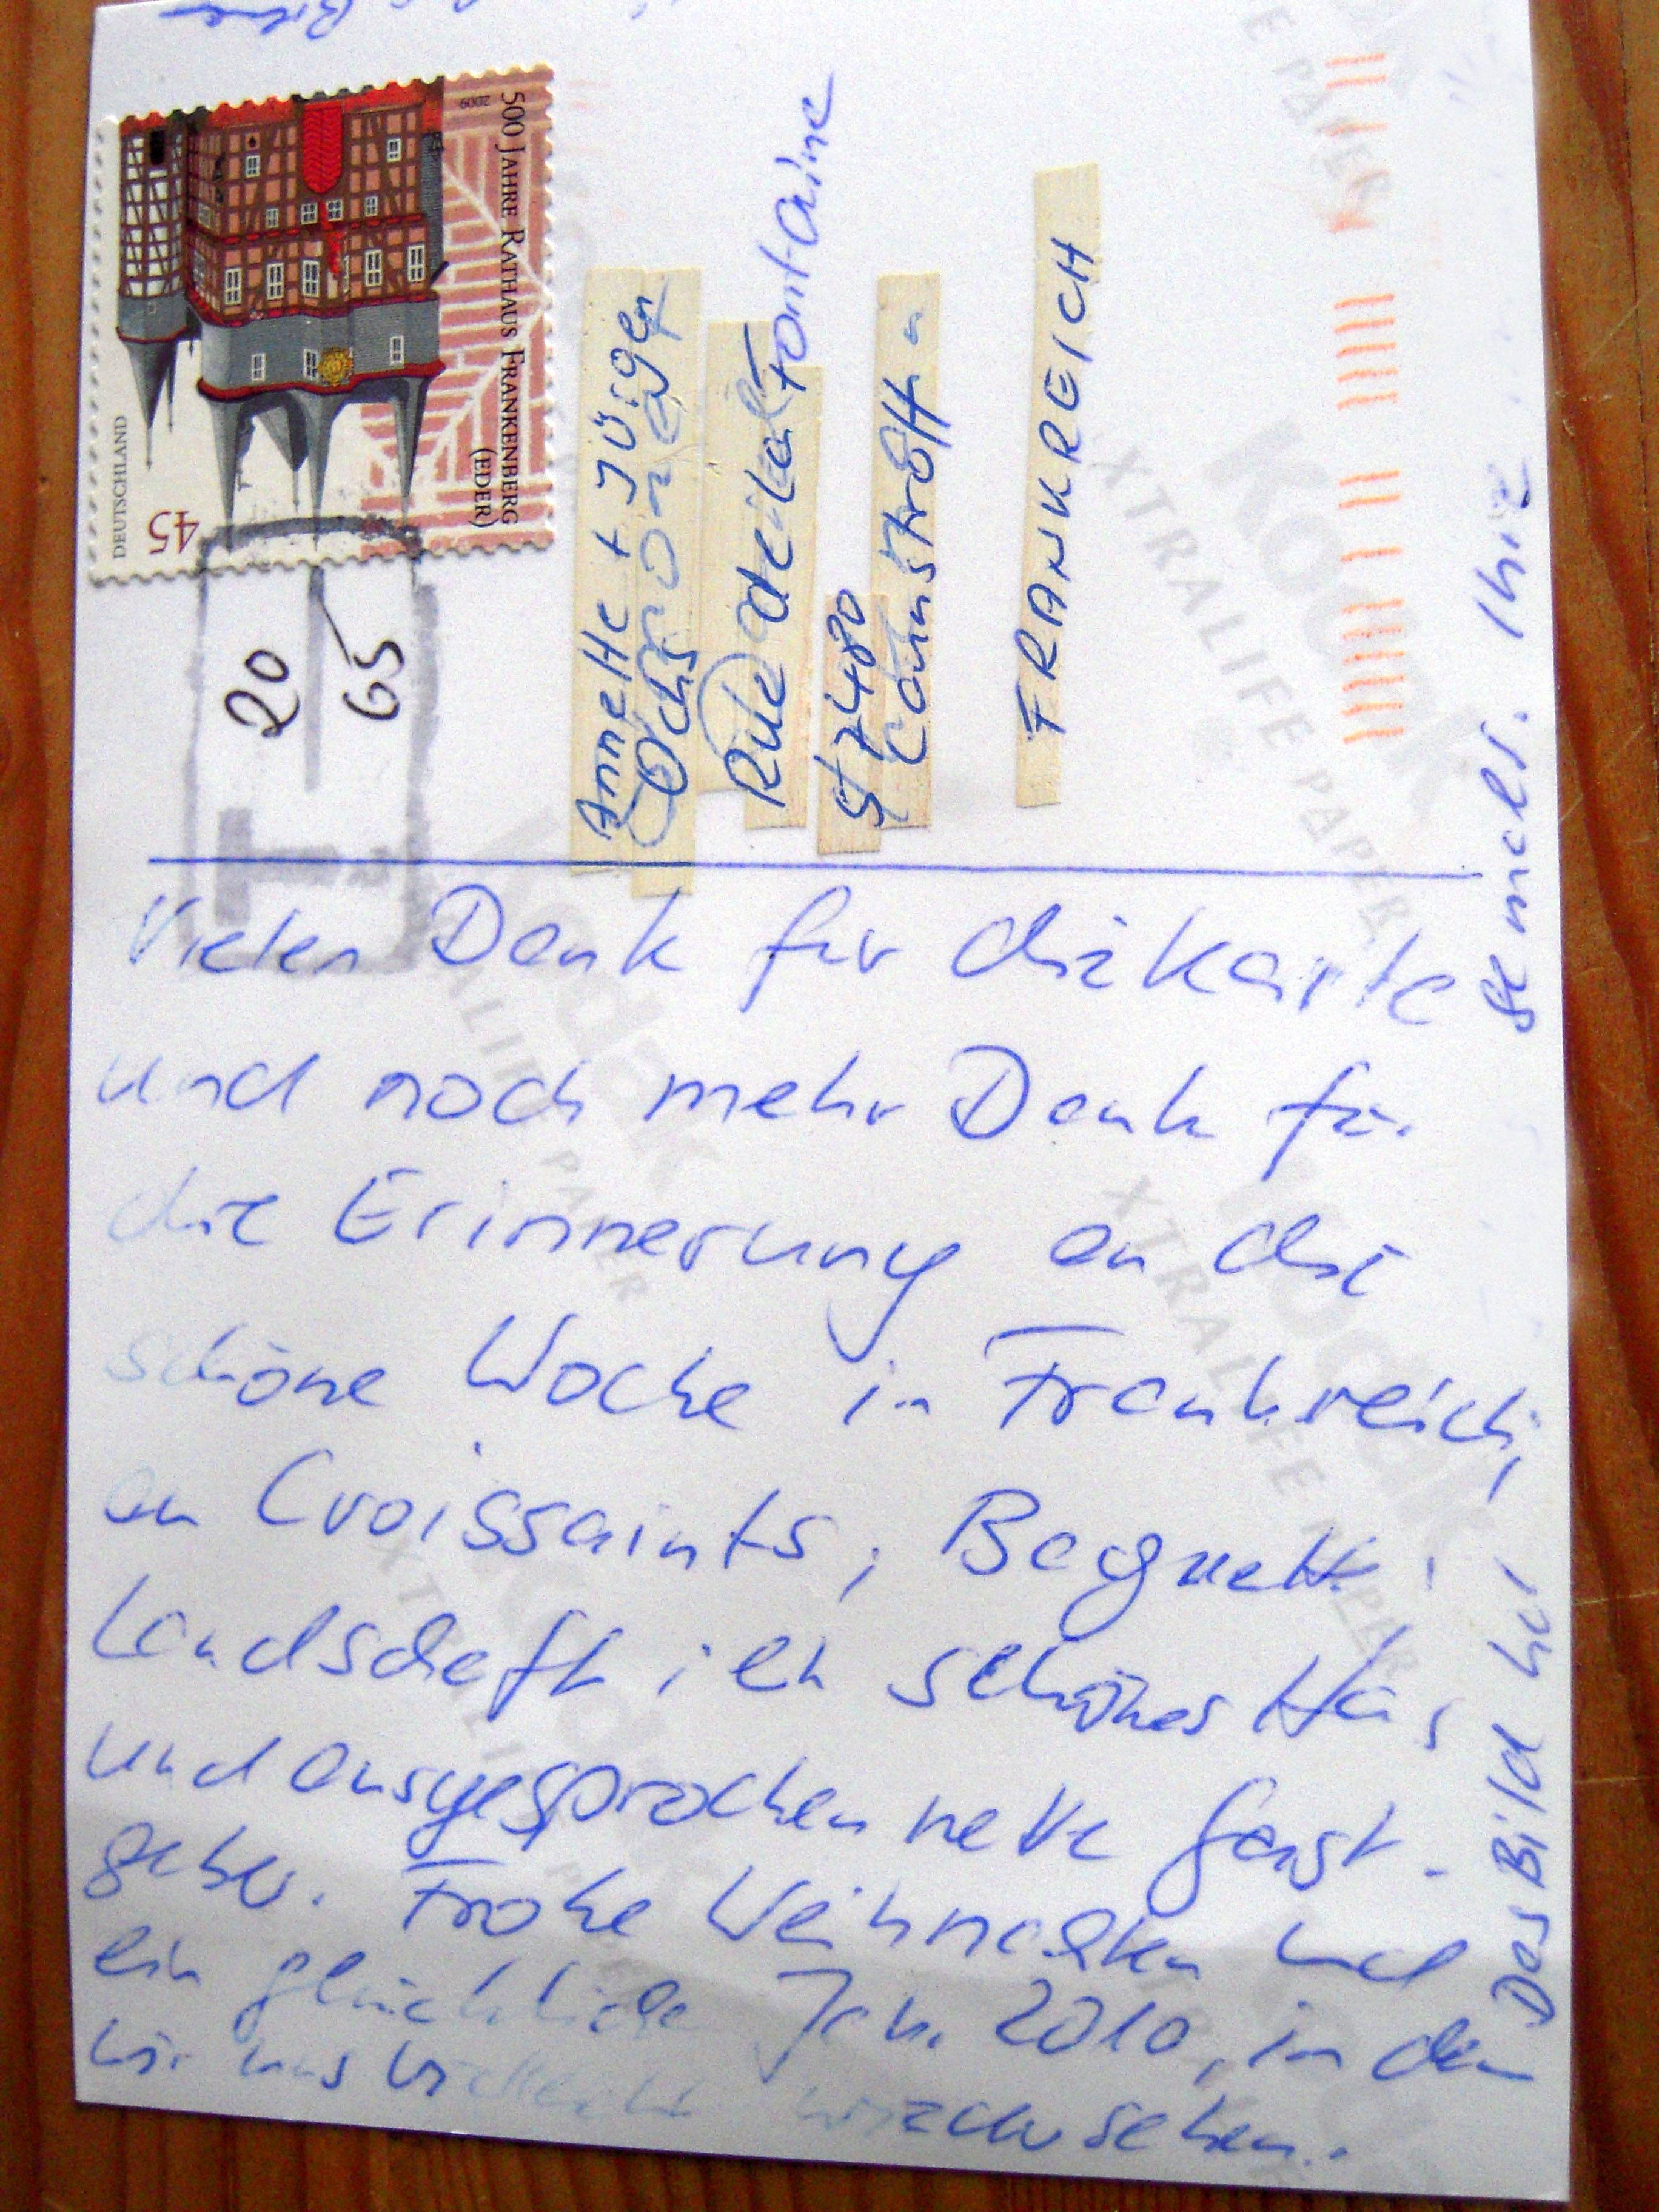 500 JAHRE RATHAUS FRANKENBERG
(EDER)
2009
DEUTSCHLAND
45
T
20
65
Annette + Jürgen
Ochs
Rue de la Fontaine
57480
FRANKREICH
Vielen Dank für die Karte
und noch mehr Dank für
die Erinnerung an die
schöne Woche in Frankreich,
an Croissaints, Baguett,
Landschaft, ein schönes Haus
und ausgesprochen nette Gast-
geber. Frohe Weihnachten und
ein glückliche Jahr 2010, in dem
wir uns vielleicht wiedersehen.
Das Bild hat
gemacht. Ihre
Kodak
XTRALIFE PAPER
Kodak
XTRALIFE PAPER
Kodak
XTRALIFE PAPER